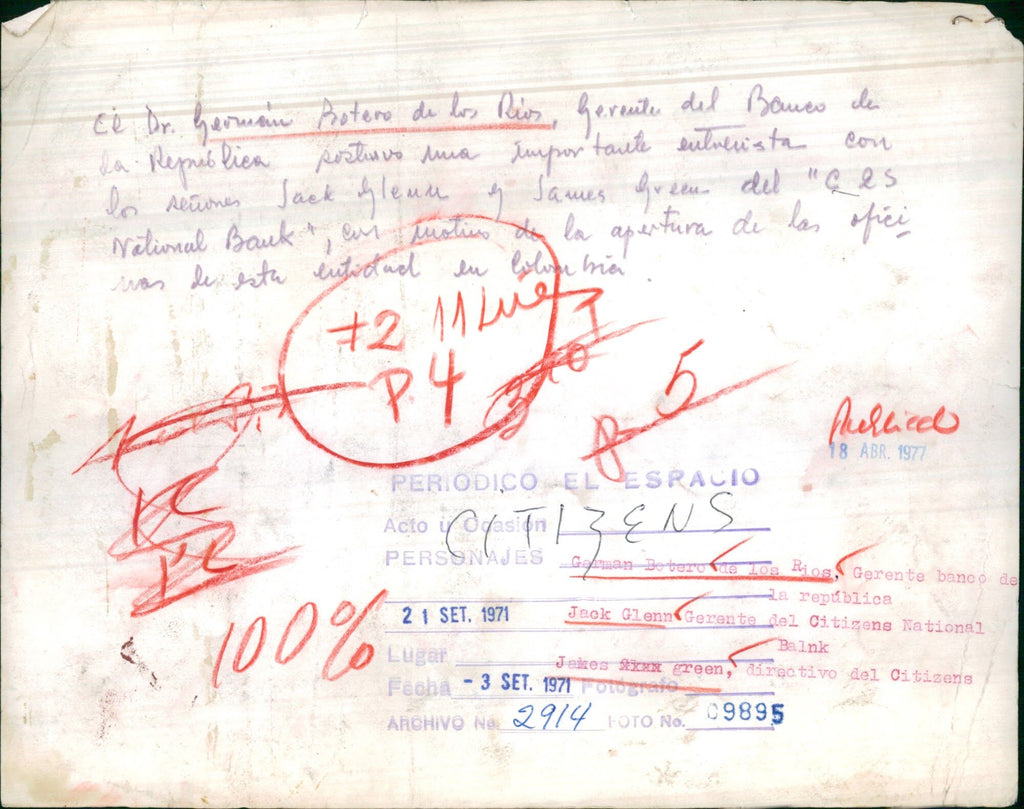 El Dr. Germán Botero de los Rios, Gerente del Banco de
la República sostuvo una importante entrevista con
los señores Jack Glenn y James Green del "
National Bank", con motivo de la apertura de las ofici-
nas de esta entidad en Colombia.
72 11
P. 4
5
Publicado
18 ABR. 1977
PERIODICO EL ESPACIO
Acto u Ocasión CITIZENS
PERSONAJES German Botero de los Rios, Gerente banco de
la república
21 SET. 1971 Jack Glenn Gerente del Citizens National
Balnk
100%
Lugar James xxxx green, directivo del Citizens
Fecha - 3 SET. 1971 Fotógrafo
ARCHIVO No. 2914 FOTO No. 09895